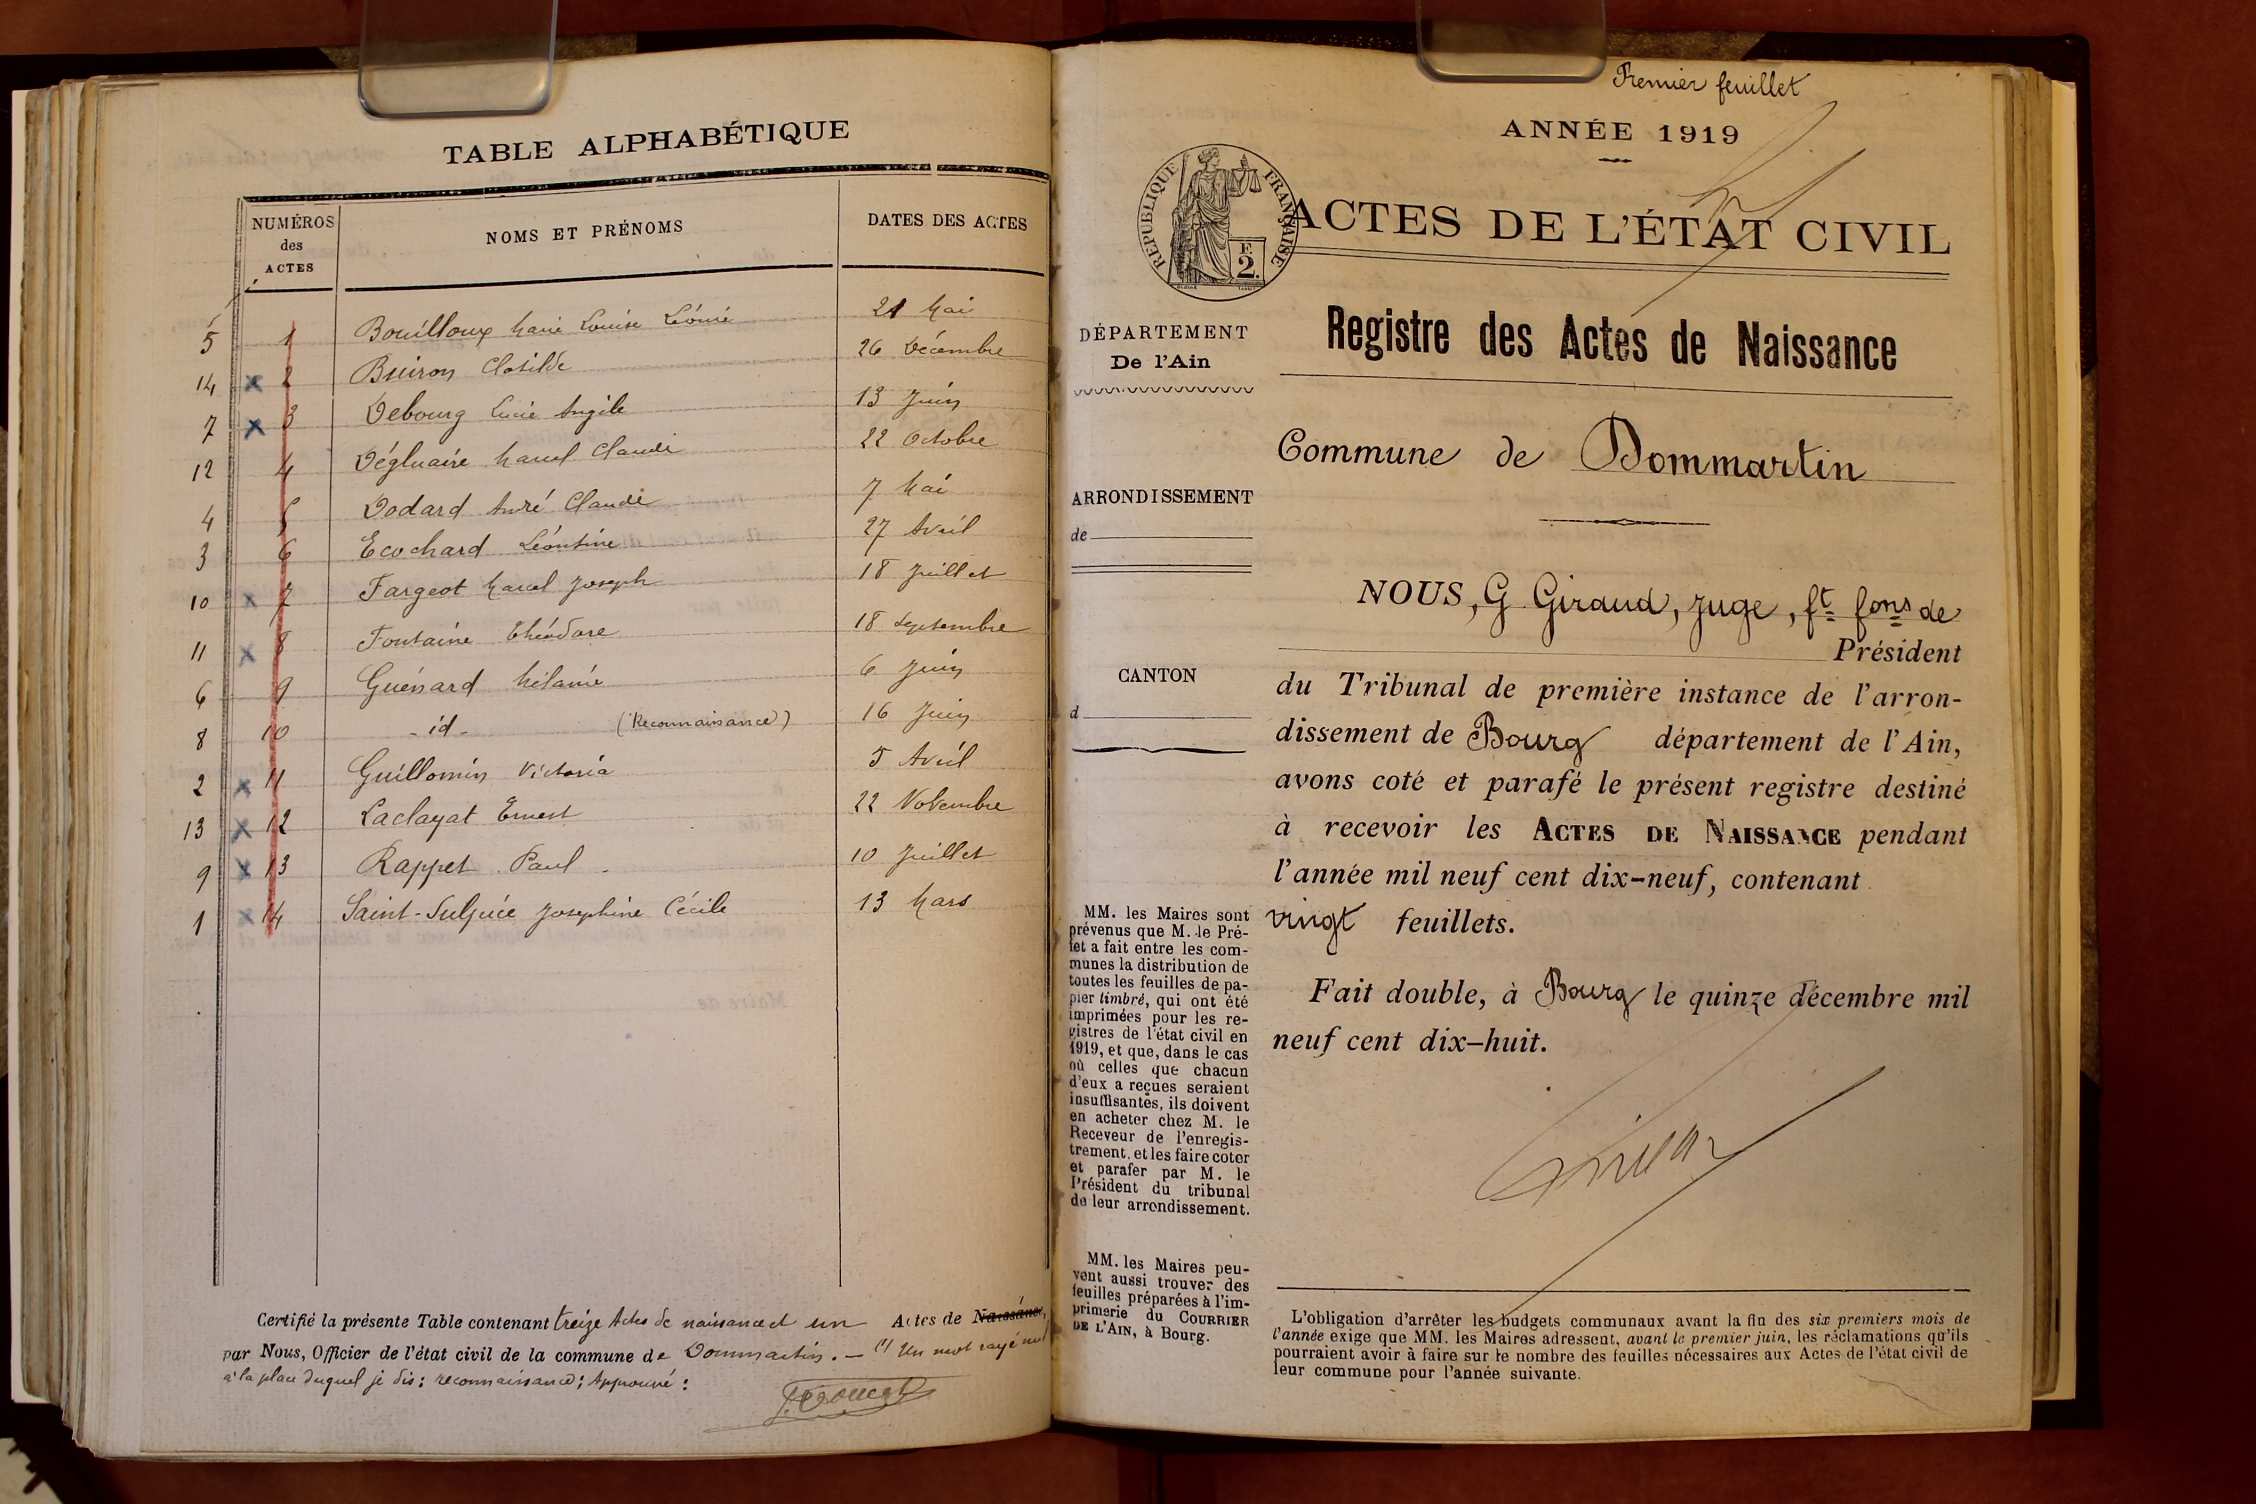 TABLE ALPHABÉTIQUE
NUMÉROS des ACTES NOMS ET PRÉNOMS DATES DES ACTES
5 1 Bouilloux Marie Louise Léonie 21 Mai
14 x 2 Buiron Clotilde 26 Décembre
7 x 3 Debourg Lucie Angèle 13 Juin
12 4 Dégluaire Marcel Claude 22 Octobre
4 5 Dodard André Claude 7 Mai
3 6 Ecochard Léontine 27 Avril
10 x 7 Fargeot Marcel Joseph 18 Juillet
11 x 8 Fontaine Théodore 18 Septembre
6 9 Guénard Mélanie 6 Juin
8 10 - id - (Reconnaissance) 16 Juin
2 x 11 Guillomin Victoria 5 Avril
13 x 12 Laclayat Ernest 22 Novembre
9 x 13 Rappet Paul 10 Juillet
1 x 14 Saint-Sulpice Joséphine Cécile 13 Mars
Certifié la présente Table contenant treize Actes de naissance et un Actes de Naissance,
par Nous, Officier de l'état civil de la commune de Dommartin. — (1) Un mot rayé nul
à la place duquel je dis : reconnaissance ; Approuvé :
Premier feuillet
ANNÉE 1919
RÉPUBLIQUE FRANÇAISE
F.
2.
ACTES DE L'ÉTAT CIVIL
DÉPARTEMENT
De l'Ain
ARRONDISSEMENT
de
CANTON
d
MM. les Maires sont
prévenus que M. le Pré-
fet a fait entre les com-
munes la distribution de
toutes les feuilles de pa-
pier timbré, qui ont été
imprimées pour les re-
gistres de l'état civil en
1919, et que, dans le cas
où celles que chacun
d'eux a reçues seraient
insuffisantes, ils doivent
en acheter chez M. le
Receveur de l'enregis-
trement, et les faire coter
et parafer par M. le
Président du tribunal
de leur arrondissement.
MM. les Maires peu-
vent aussi trouver des
feuilles préparées à l'im-
primerie du COURRIER
DE L'AIN, à Bourg.
Registre des Actes de Naissance
Commune de Dommartin
NOUS, G Giraud, juge, ft fons de
Président
du Tribunal de première instance de l'arron-
dissement de Bourg département de l'Ain,
avons coté et parafé le présent registre destiné
à recevoir les ACTES DE NAISSANCE pendant
l'année mil neuf cent dix-neuf, contenant
vingt feuillets.
Fait double, à Bourg le quinze décembre mil
neuf cent dix-huit.
L'obligation d'arrêter les budgets communaux avant la fin des six premiers mois de
l'année exige que MM. les Maires adressent, avant le premier juin, les réclamations qu'ils
pourraient avoir à faire sur le nombre des feuilles nécessaires aux Actes de l'état civil de
leur commune pour l'année suivante.